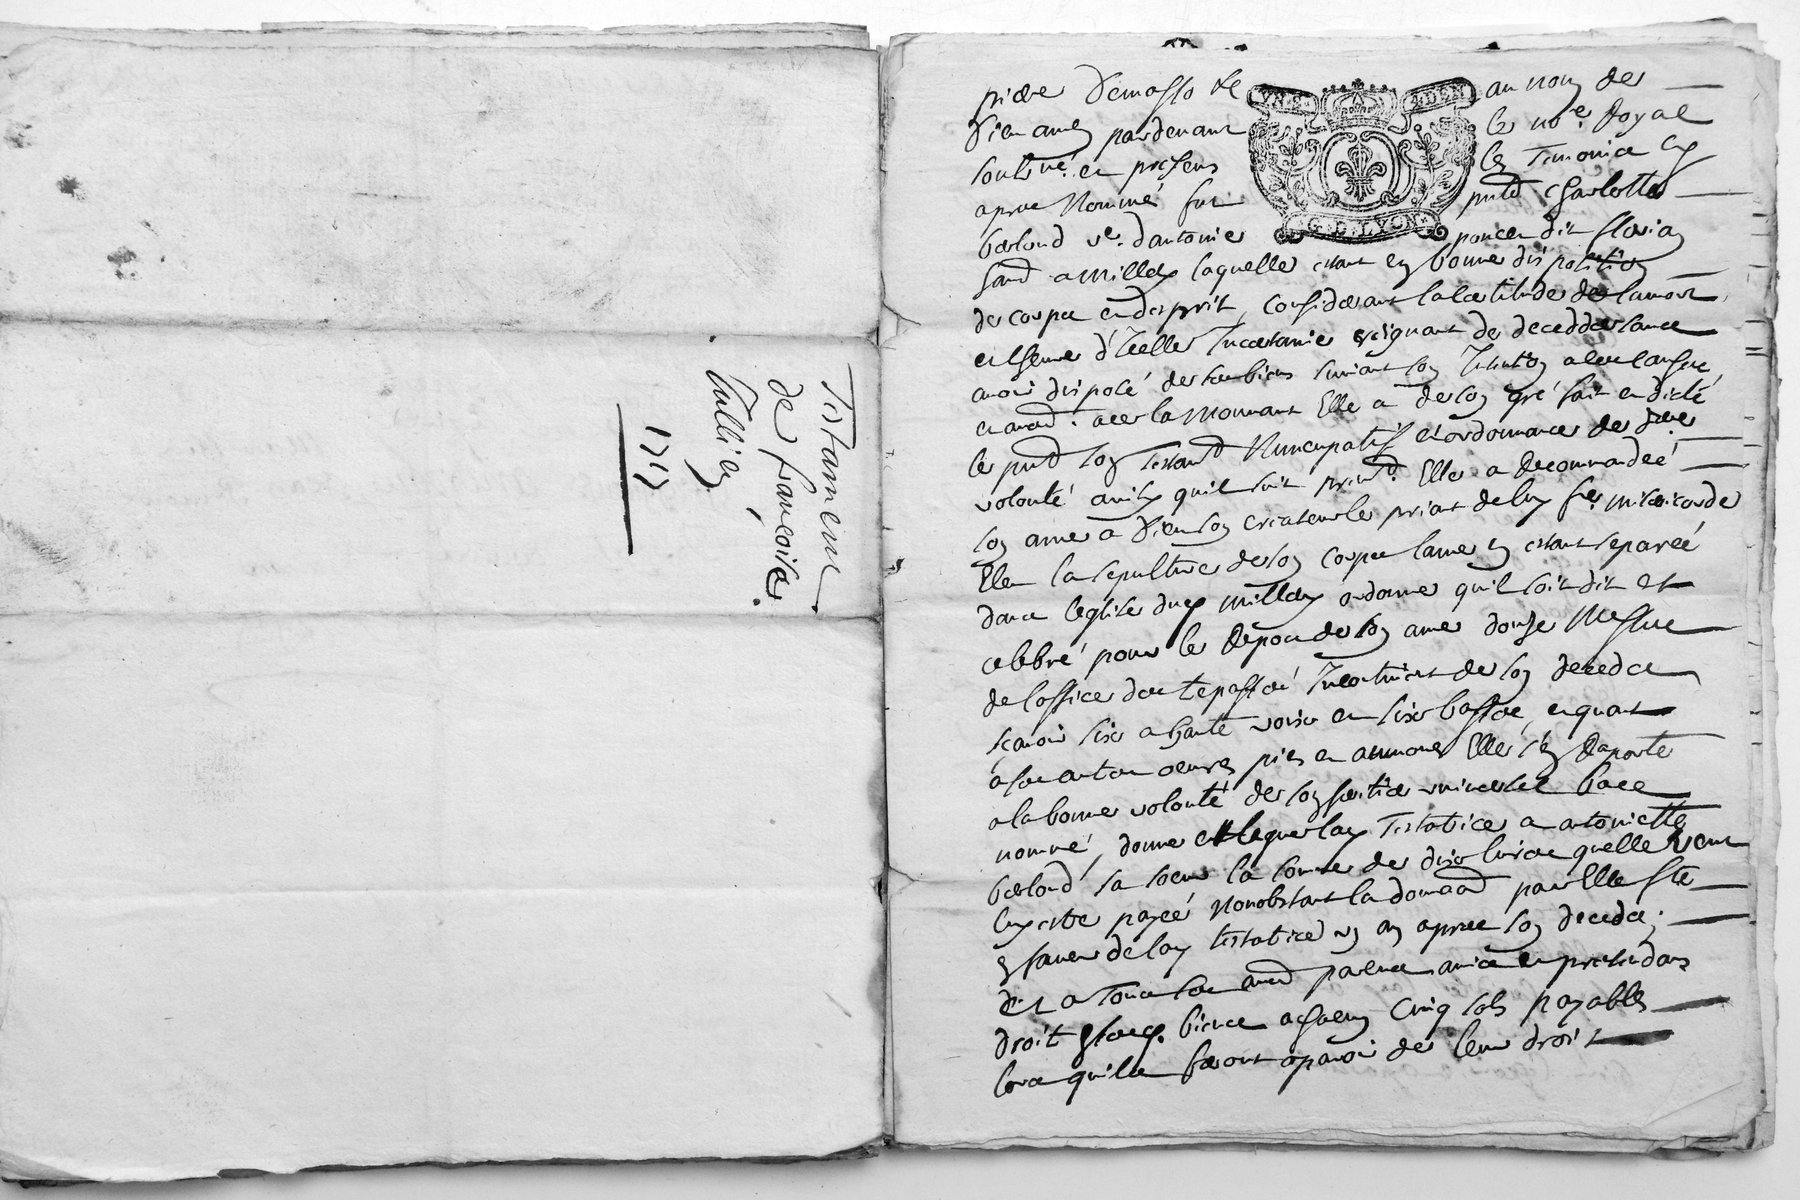 Testament
de françoise
Jullien
1717
VN S. 4 DEN
G. D. LYON
au nom de
Dieu amen pardevant le no.re Royal
soub.né en presens les Temoins cy
apres Nommé fut pnt Charlotte
berlond v.e d'antoine poncen dit florian
laquelle estant en bonne disposition
de corps et d'esprit, considerant la certitude de la mort
et l'heure d'icelle Incertaine creignant de decedder sans
avoir disposé de ses biens suivant son Intention
Elle a de son gré fait et dicté
le pnt son testam.t Nuncupatif et ordonnance de
volonté quil suit prem.t Elle a Recommandeé
son ame a Dieu son createur le priant de luy f.e misericorde
Elle la sepulture de son corps l'ame en estant separeé
dans leglise ordonne quil soit dit et
celebré pour le Repos de son ame douse Messes
de loffice des Trepassés de son decedz
sçavoir six a haute voix et six basses, et quant
a ses autres oeuvres pies et aumones Elle s'en Raporte
a la bonne volonté de son heritier universel bas
nommé, donne et legue lad. Testatrice a antoinette
berlond sa soeur la somme de dix livres quelle veut
luy estre payeé Nonobstant la donaon par Elle fte
en faveur de lad. testatrice un an apres son decedz;
et a tous ses aud. parens amis et pretendans
droit biens a chacun cinq sols payables
lors quils feront aparoir de leur droit